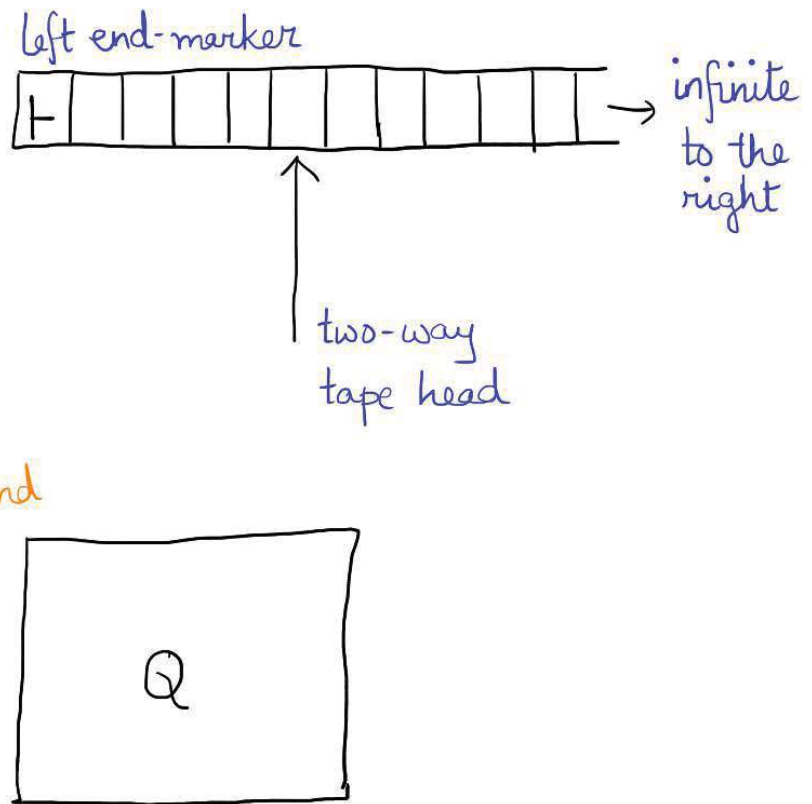 left end-marker
⊢
infinite
to the
right
two-way
tape head
nd
Q